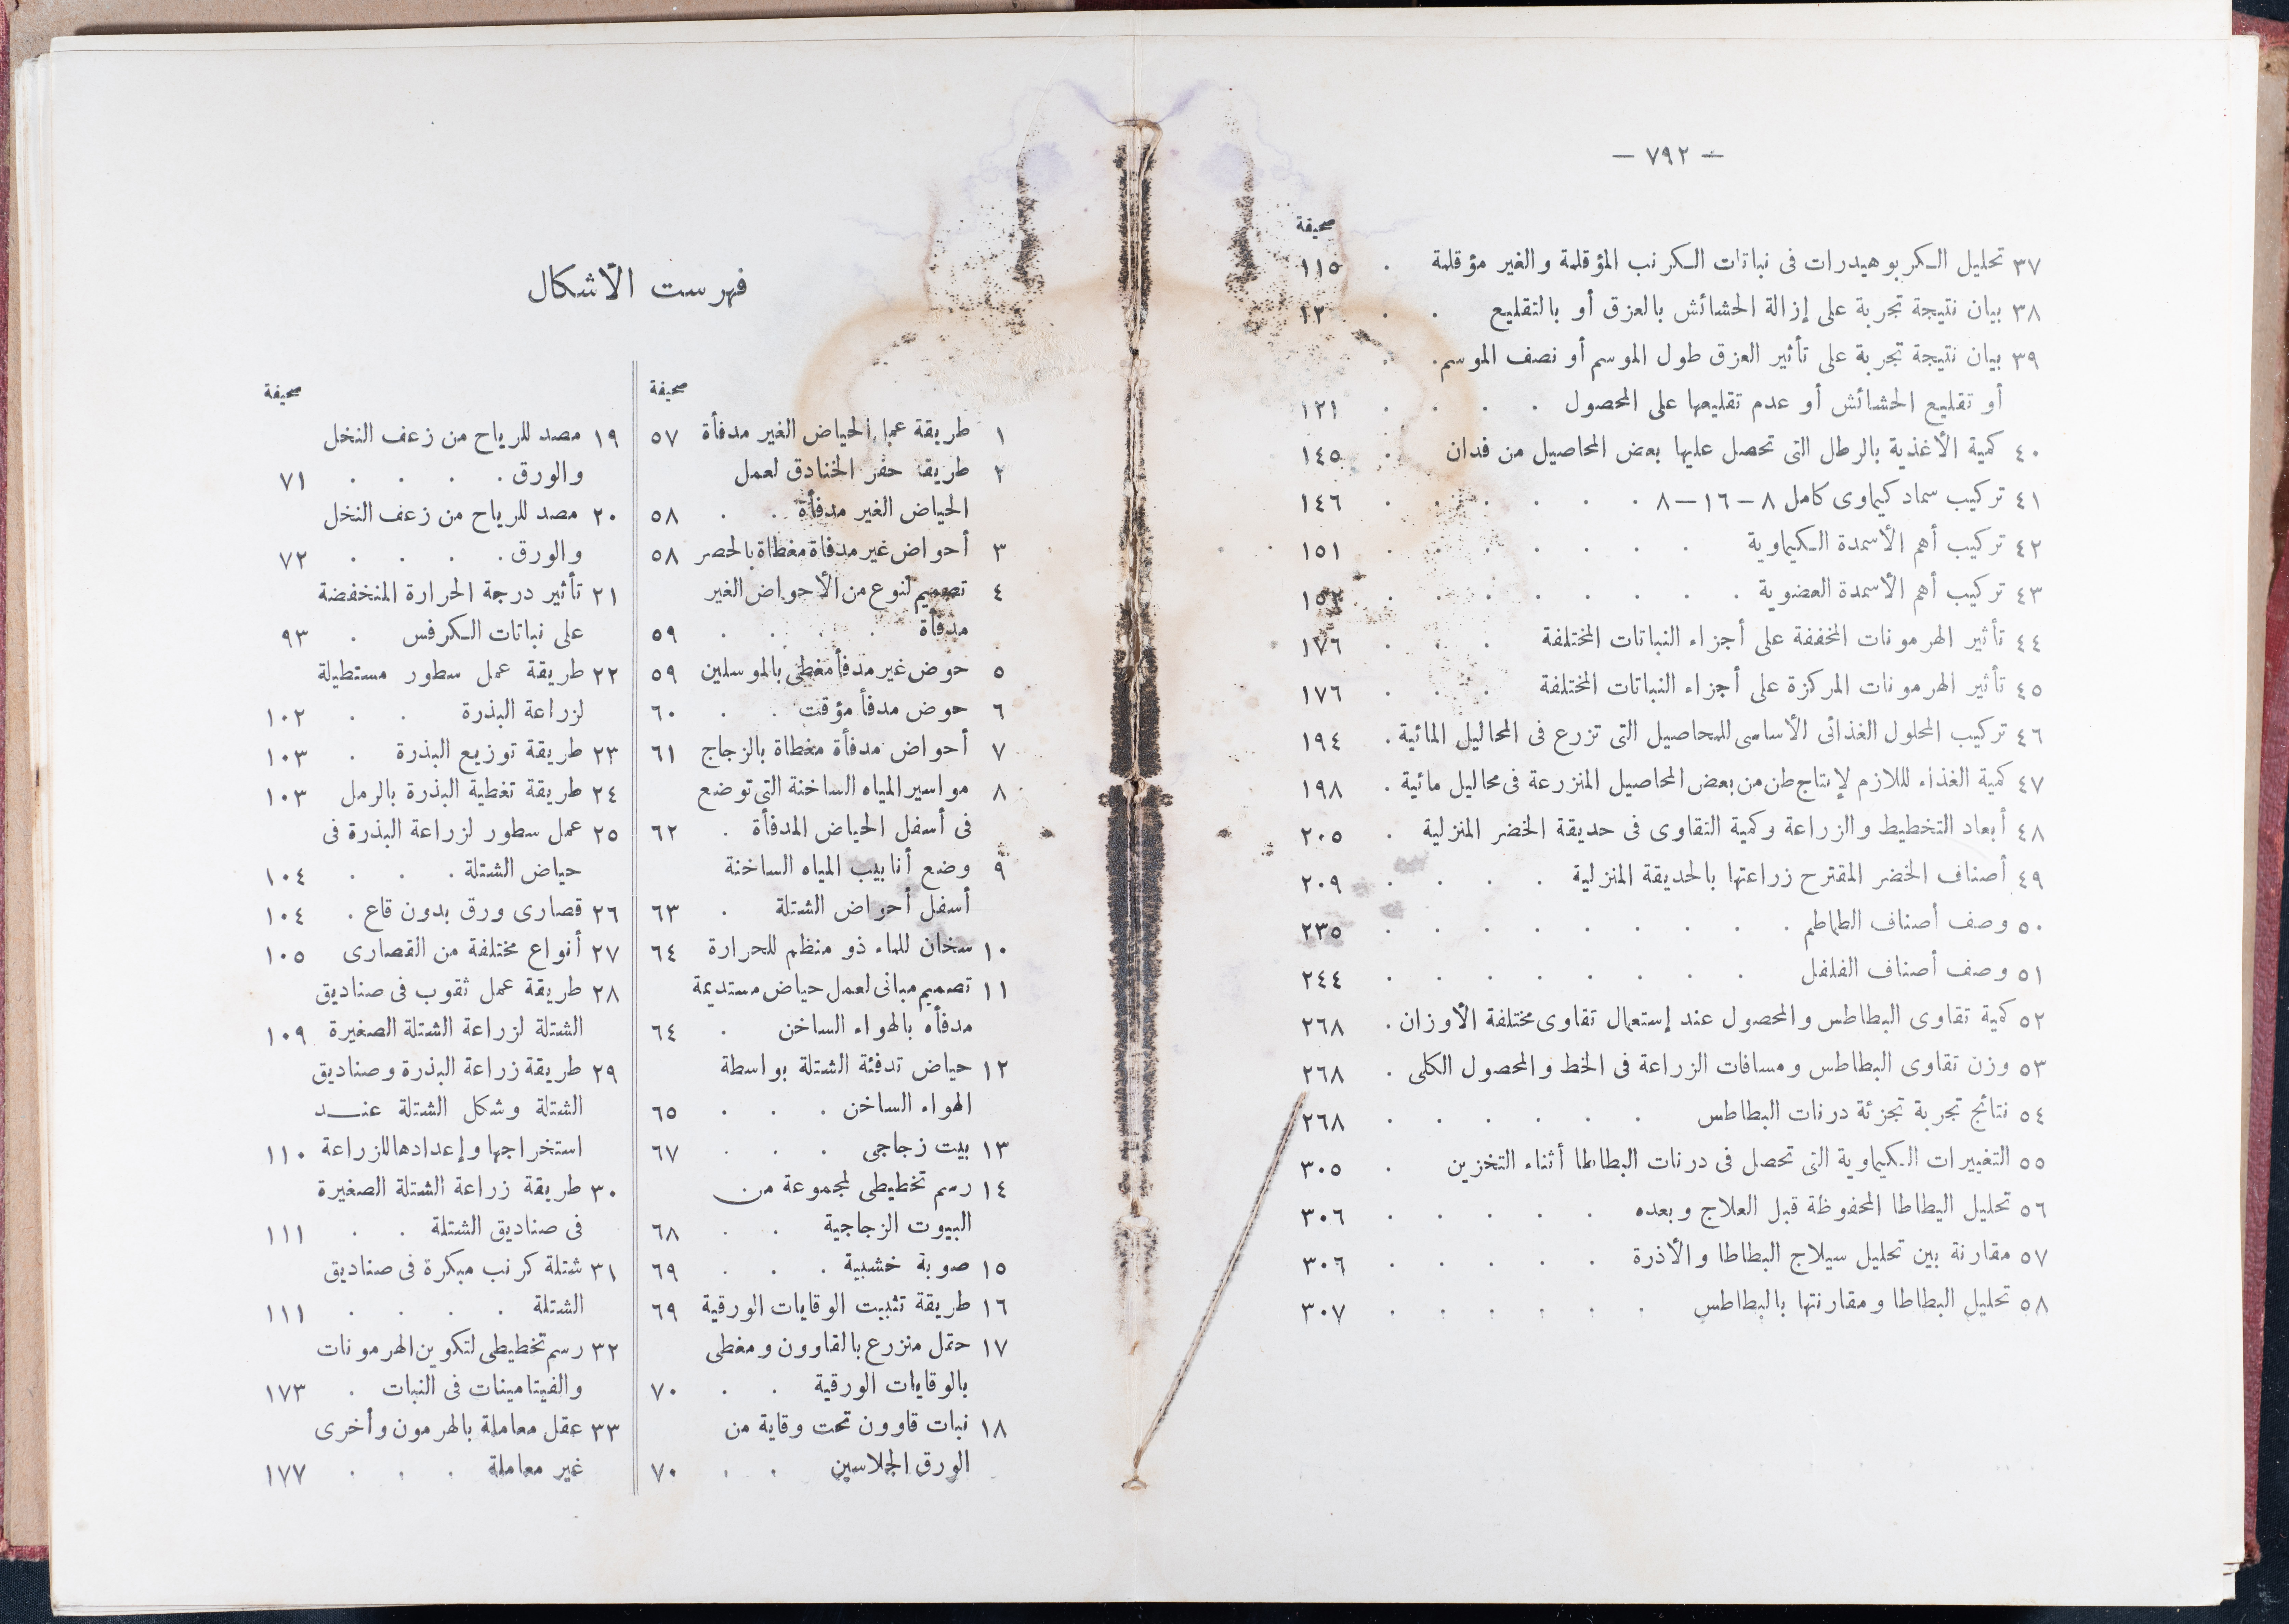 — ٧٩٢ —
صحيفة
٣٧ تحليل الكربوهيدرات فى نباتات الكرنب المؤقلمة والغير مؤقلمة . ١١٥
٣٨ بيان نتيجة تجربة على إزالة الحشائش بالعزق أو بالتقليع . .
٣٩ بيان نتيجة تجربة على تأثير العزق طول الموسم أو نصف الموسم .
أو تقليع الحشائش أو عدم تقليعها على المحصول . . . . ١٢١
٤٠ كمية الأغذية بالرطل التى تحصل عليها بعض المحاصيل من فدان . ١٤٥
٤١ تركيب سماد كيماوى كامل ٨ – ١٦ – ٨ . . . . . . ١٤٦
٤٢ تركيب أهم الأسمدة الكيماوية . . . . . . . ١٥١
٤٣ تركيب أهم الأسمدة العضوية . . . . . . . .
٤٤ تأثير الهرمونات المخففة على أجزاء النباتات المختلفة . . . ١٧٦
٤٥ تأثير الهرمونات المركزة على أجزاء النباتات المختلفة . . . ١٧٦
٤٦ تركيب المحلول الغذائى الأساسى للمحاصيل التى تزرع فى المحاليل المائية . ١٩٤
٤٧ كمية الغذاء اللازم لإنتاج طن من بعض المحاصيل المنزرعة فى محاليل مائية . ١٩٨
٤٨ أبعاد التخطيط والزراعة وكمية التقاوى فى حديقة الخضر المنزلية . ٢٠٥
٤٩ أصناف الخضر المقترح زراعتها بالحديقة المنزلية . . . . ٢٠٩
٥٠ وصف أصناف الطماطم . . . . . . . . ٢٣٥
٥١ وصف أصناف الفلفل . . . . . . . . ٢٤٤
٥٢ كمية تقاوى البطاطس والمحصول عند إستعمال تقاوى مختلفة الأوزان . ٢٦٨
٥٣ وزن تقاوى البطاطس ومسافات الزراعة فى الخط والمحصول الكلى . ٢٦٨
٥٤ نتائج تجربة تجزئة درنات البطاطس . . . . . . ٢٦٨
٥٥ التغييرات الكيماوية التى تحصل فى درنات البطاطا أثناء التخزين . ٣٠٥
٥٦ تحليل البطاطا المحفوظة قبل العلاج وبعده . . . . . ٣٠٦
٥٧ مقارنة بين تحليل سيلاج البطاطا والأذرة . . . . . ٣٠٦
٥٨ تحليل البطاطا ومقارنتها بالبطاطس . . . . . . ٣٠٧
فهرست الأشكال
صحيفة
١ طريقة عمل الحياض الغير مدفأة ٥٧
٢ طريقة حفر الخنادق لعمل
الحياض الغير مدفأة . . ٥٨
٣ أحواض غير مدفأة مغطاة بالحصر ٥٨
٤ تصميم لنوع من الأحواض الغير
مدفأة . . . . ٥٩
٥ حوض غير مدفأ مغطى بالموسلين ٥٩
٦ حوض مدفأ مؤقت . . ٦٠
٧ أحواض مدفأة مغطاة بالزجاج ٦١
٨ مواسير المياه الساخنة التى توضع
فى أسفل الحياض المدفأة . ٦٢
٩ وضع أنابيب المياه الساخنة
أسفل أحواض الشتلة . ٦٣
١٠ سخان للماء ذو منظم للحرارة ٦٤
١١ تصميم مبانى لعمل حياض مستديمة
مدفأه بالهواء الساخن . ٦٤
١٢ حياض تدفئة الشتلة بواسطة
الهواء الساخن . . . ٦٥
١٣ بيت زجاجى . . . ٦٧
١٤ رسم تخطيطى لمجموعة من
البيوت الزجاجية . . ٦٨
١٥ صوبة خشبية . . . ٦٩
١٦ طريقة تثبيت الوقايات الورقية ٦٩
١٧ حقل منزرع بالقاوون ومغطى
بالوقايات الورقية . . ٧٠
١٨ نبات قاوون تحت وقاية من
الورق الجلاسين . . ٧٠
صحيفة
١٩ مصد للرياح من زعف النخل
والورق . . . . ٧١
٢٠ مصد للرياح من زعف النخل
والورق . . . . ٧٢
٢١ تأثير درجة الحرارة المنخفضة
على نباتات الكرفس . ٩٣
٢٢ طريقة عمل سطور مستطيلة
لزراعة البذرة . . ١٠٢
٢٣ طريقة توزيع البذرة . ١٠٣
٢٤ طريقة تغطية البذرة بالرمل ١٠٣
٢٥ عمل سطور لزراعة البذرة فى
حياض الشتلة . . . ١٠٤
٢٦ قصارى ورق بدون قاع . ١٠٤
٢٧ أنواع مختلفة من القصارى ١٠٥
٢٨ طريقة عمل ثقوب فى صناديق
الشتلة لزراعة الشتلة الصغيرة ١٠٩
٢٩ طريقة زراعة البذرة وصناديق
الشتلة وشكل الشتلة عند
استخراجها وإعدادها للزراعة ١١٠
٣٠ طريقة زراعة الشتلة الصغيرة
فى صناديق الشتلة . . ١١١
٣١ شتلة كرنب مبكرة فى صناديق
الشتلة . . . . ١١١
٣٢ رسم تخطيطى لتكوين الهرمونات
والفيتامينات فى النبات . ١٧٣
٣٣ عقل معاملة بالهرمون وأخرى
غير معاملة . . . ١٧٧